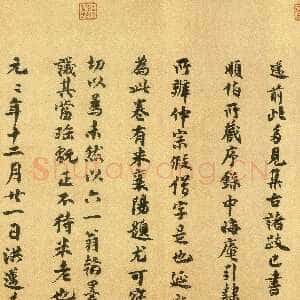 遂前此多見集古諸跋已書
順伯所藏序錄中晦庵引隸
所辨仲宗假借字是也延
為此卷有米襄陽題尤可寶
切以為未然以六一翁翰墨
議其當強就正不待米老也
元二年十二月廿一日洪邁